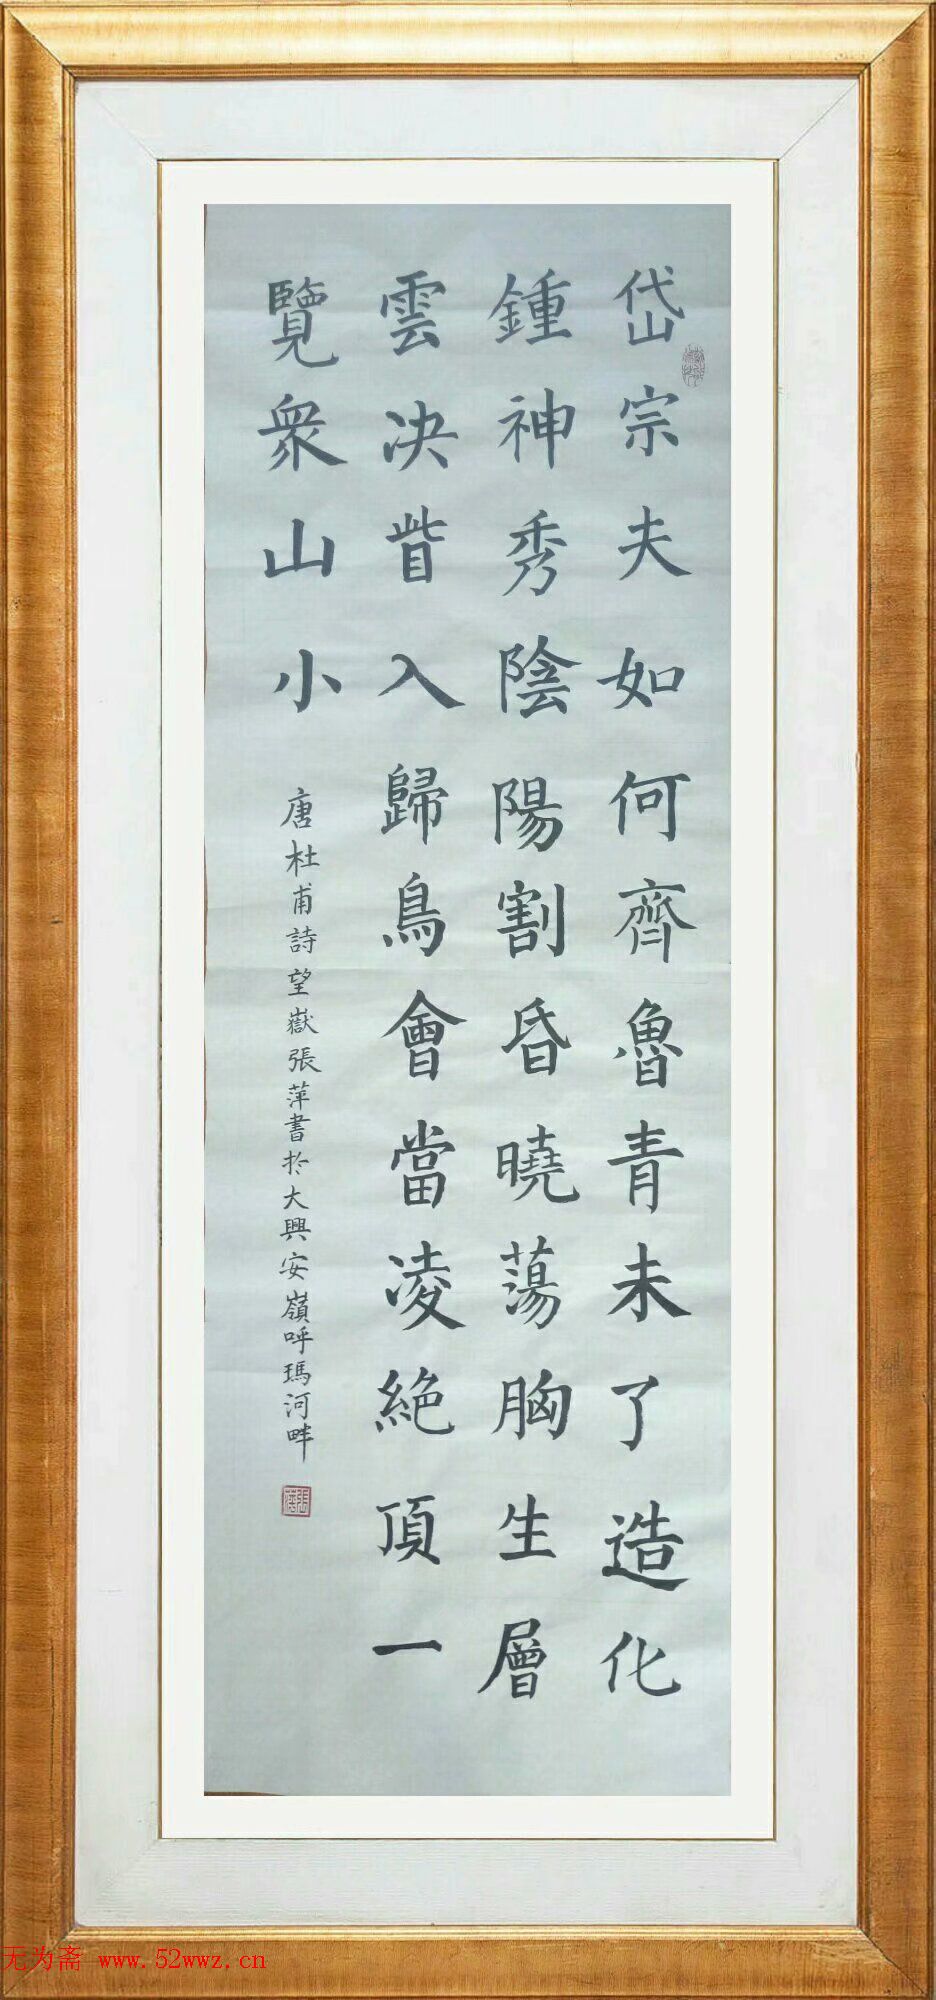 岱宗夫如何齊魯青未了造化
鍾神秀陰陽割昏曉蕩胸生層
雲決眥入歸鳥會當凌絶頂一
覽衆山小
唐杜甫詩望嶽張萍書於大興安嶺呼瑪河畔
无为斋 www.52wwz.cn